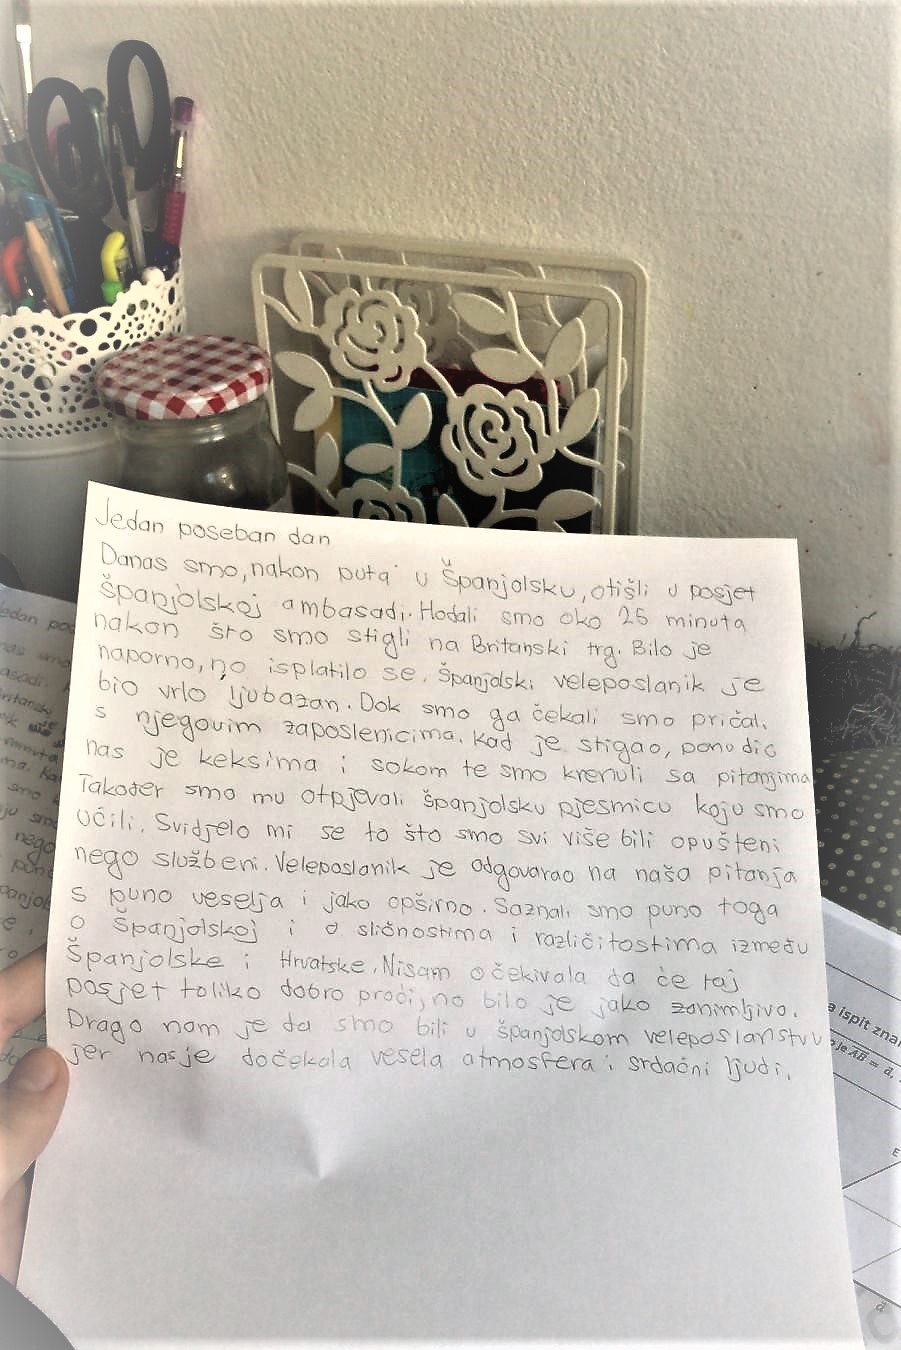 Jedan poseban dan
Danas smo, nakon puta u Španjolsku, otišli u posjet
Španjolskoj ambasadi. Hodali smo oko 25 minuta
nakon što smo stigli na Britanski trg. Bilo je
naporno, no isplatilo se. Španjolski veleposlanik je
bio vrlo ljubazan. Dok smo ga čekali smo pričali
s njegovim zaposlenicima. Kad je stigao, ponudio
nas je keksima i sokom te smo krenuli sa pitanjima
Također smo mu otpjevali španjolsku pjesmicu koju smo
učili. Svidjelo mi se to što smo svi više bili opušteni
nego službeni. Veleposlanik je odgovarao na naša pitanja
s puno veselja i jako opširno. Saznali smo puno toga
o Španjolskoj i o sličnostima i različitostima između
Španjolske i Hrvatske. Nisam očekivala da će taj
posjet toliko dobro proći, no bilo je jako zanimljivo.
Drago nam je da smo bili u španjolskom veleposlanstvu
jer nas je dočekala vesela atmosfera i srdačni ljudi.
a ispit zna
je AB = a,
E
a